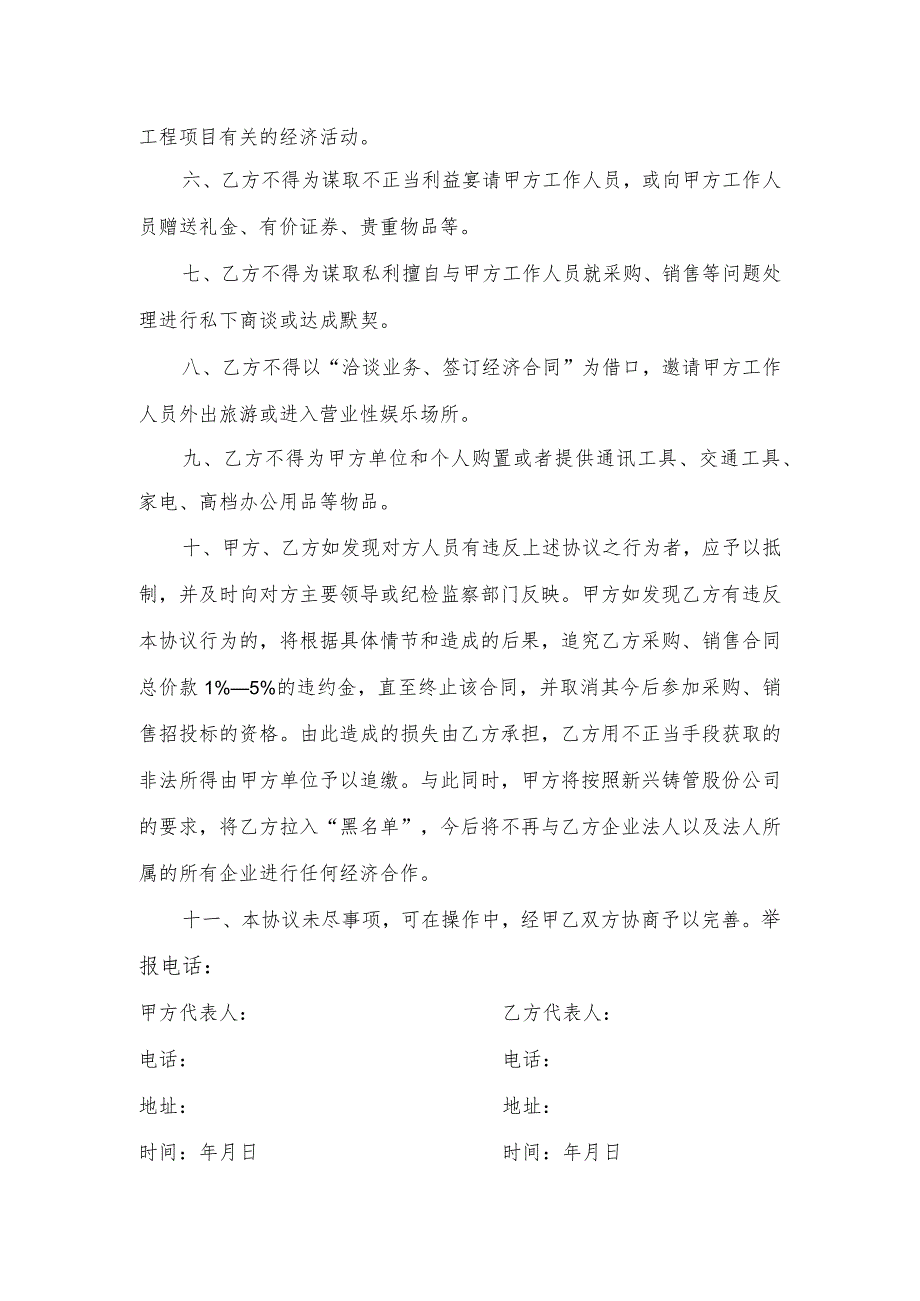 工程项目有关的经济活动。
六、乙方不得为谋取不正当利益宴请甲方工作人员，或向甲方工作人
员赠送礼金、有价证券、贵重物品等。
七、乙方不得为谋取私利擅自与甲方工作人员就采购、销售等问题处
理进行私下商谈或达成默契。
八、乙方不得以“洽谈业务、签订经济合同”为借口，邀请甲方工作
人员外出旅游或进入营业性娱乐场所。
九、乙方不得为甲方单位和个人购置或者提供通讯工具、交通工具、
家电、高档办公用品等物品。
十、甲方、乙方如发现对方人员有违反上述协议之行为者，应予以抵
制，并及时向对方主要领导或纪检监察部门反映。甲方如发现乙方有违反
本协议行为的，将根据具体情节和造成的后果，追究乙方采购、销售合同
总价款1%—5%的违约金，直至终止该合同，并取消其今后参加采购、销
售招投标的资格。由此造成的损失由乙方承担，乙方用不正当手段获取的
非法所得由甲方单位予以追缴。与此同时，甲方将按照新兴铸管股份公司
的要求，将乙方拉入“黑名单”，今后将不再与乙方企业法人以及法人所
属的所有企业进行任何经济合作。
十一、本协议未尽事项，可在操作中，经甲乙双方协商予以完善。举
报电话：
甲方代表人： 乙方代表人：
电话： 电话：
地址： 地址：
时间：年月日 时间：年月日